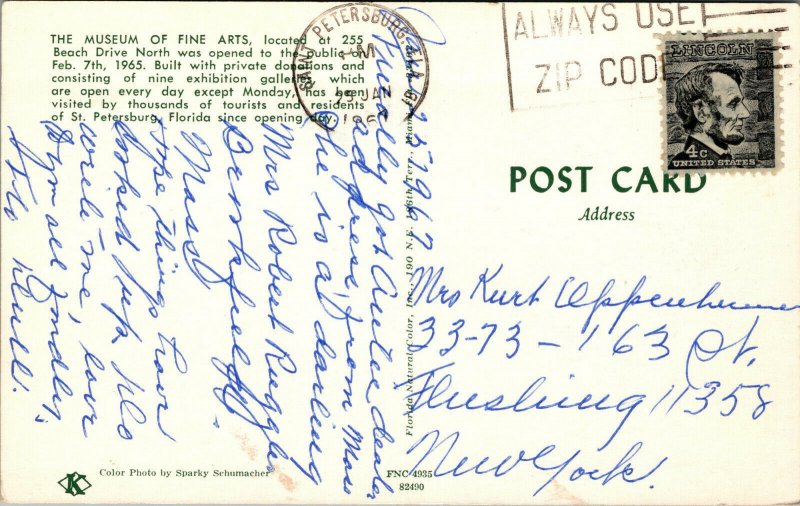 THE MUSEUM OF FINE ARTS, located at 255
Beach Drive North was opened to the public on
Feb. 7th, 1965. Built with private donations and
consisting of nine exhibition galleries which
are open every day except Monday, has been
visited by thousands of tourists and residents
of St. Petersburg, Florida since opening day.
SAINT PETERSBURG, FLA
PM
JAN
196
ALWAYS USE
ZIP CODE
LINCOLN
4c
UNITED STATES
POST CARD
Address
Mrs Kurt Oppenheimer
33-73-163 St.
Flushing 11358
New York.
25 1967
Finally got Antique dealer
address from Mass
She is at darling
Mrs Robert Ruggles
Brookfield
Mass
Hope things have
looked up. Do
write me, love
to you all fondly,
Flo Krull.
Florida Natural Color, Inc., 190 N.E. 186th Terr., Miami, Fla.
K
Color Photo by Sparky Schumacher
FNC 4935
82490